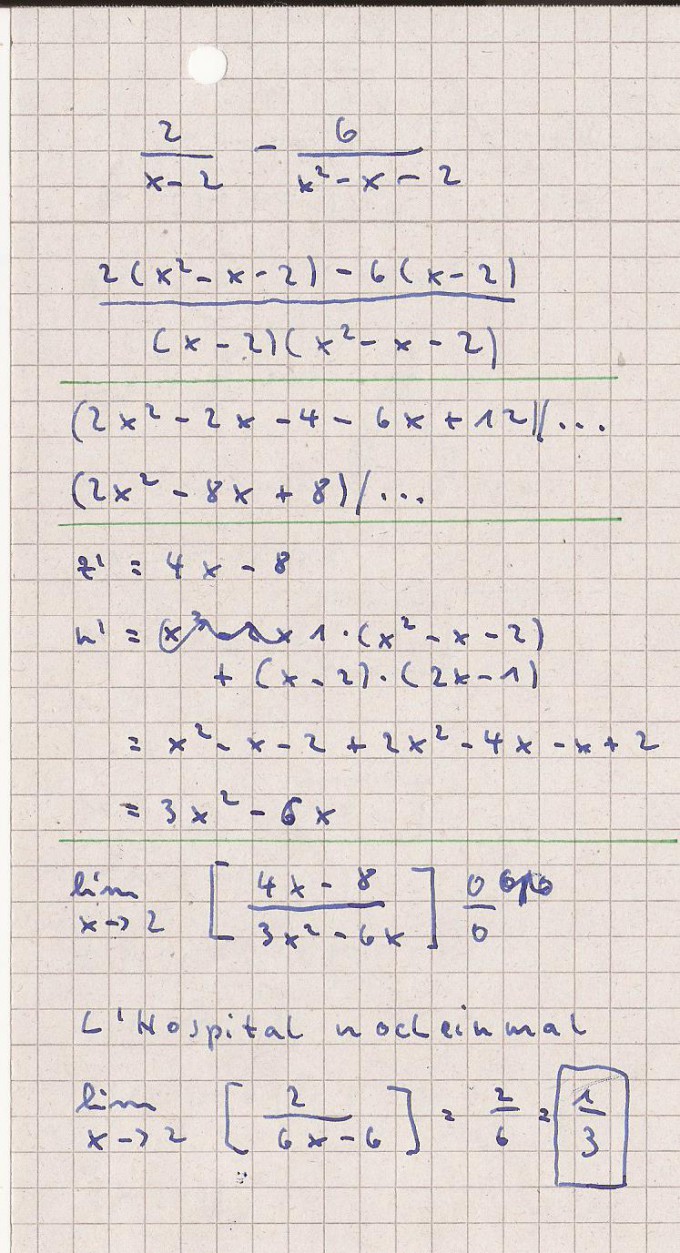 2/(x-2) - 6/(x²-x-2)
(2(x²-x-2)-6(x-2))/((x-2)(x²-x-2))
(2x²-2x-4-6x+12)/...
(2x²-8x+8)/...
z' = 4x-8
n' = 1·(x²-x-2)
+ (x-2)·(2x-1)
= x²-x-2+2x²-4x-x+2
= 3x²-6x
lim x→2 [(4x-8)/(3x²-6x)] 0/0
L'Hospital nocheinmal
lim x→2 [2/(6x-6)] = 2/6 = 1/3